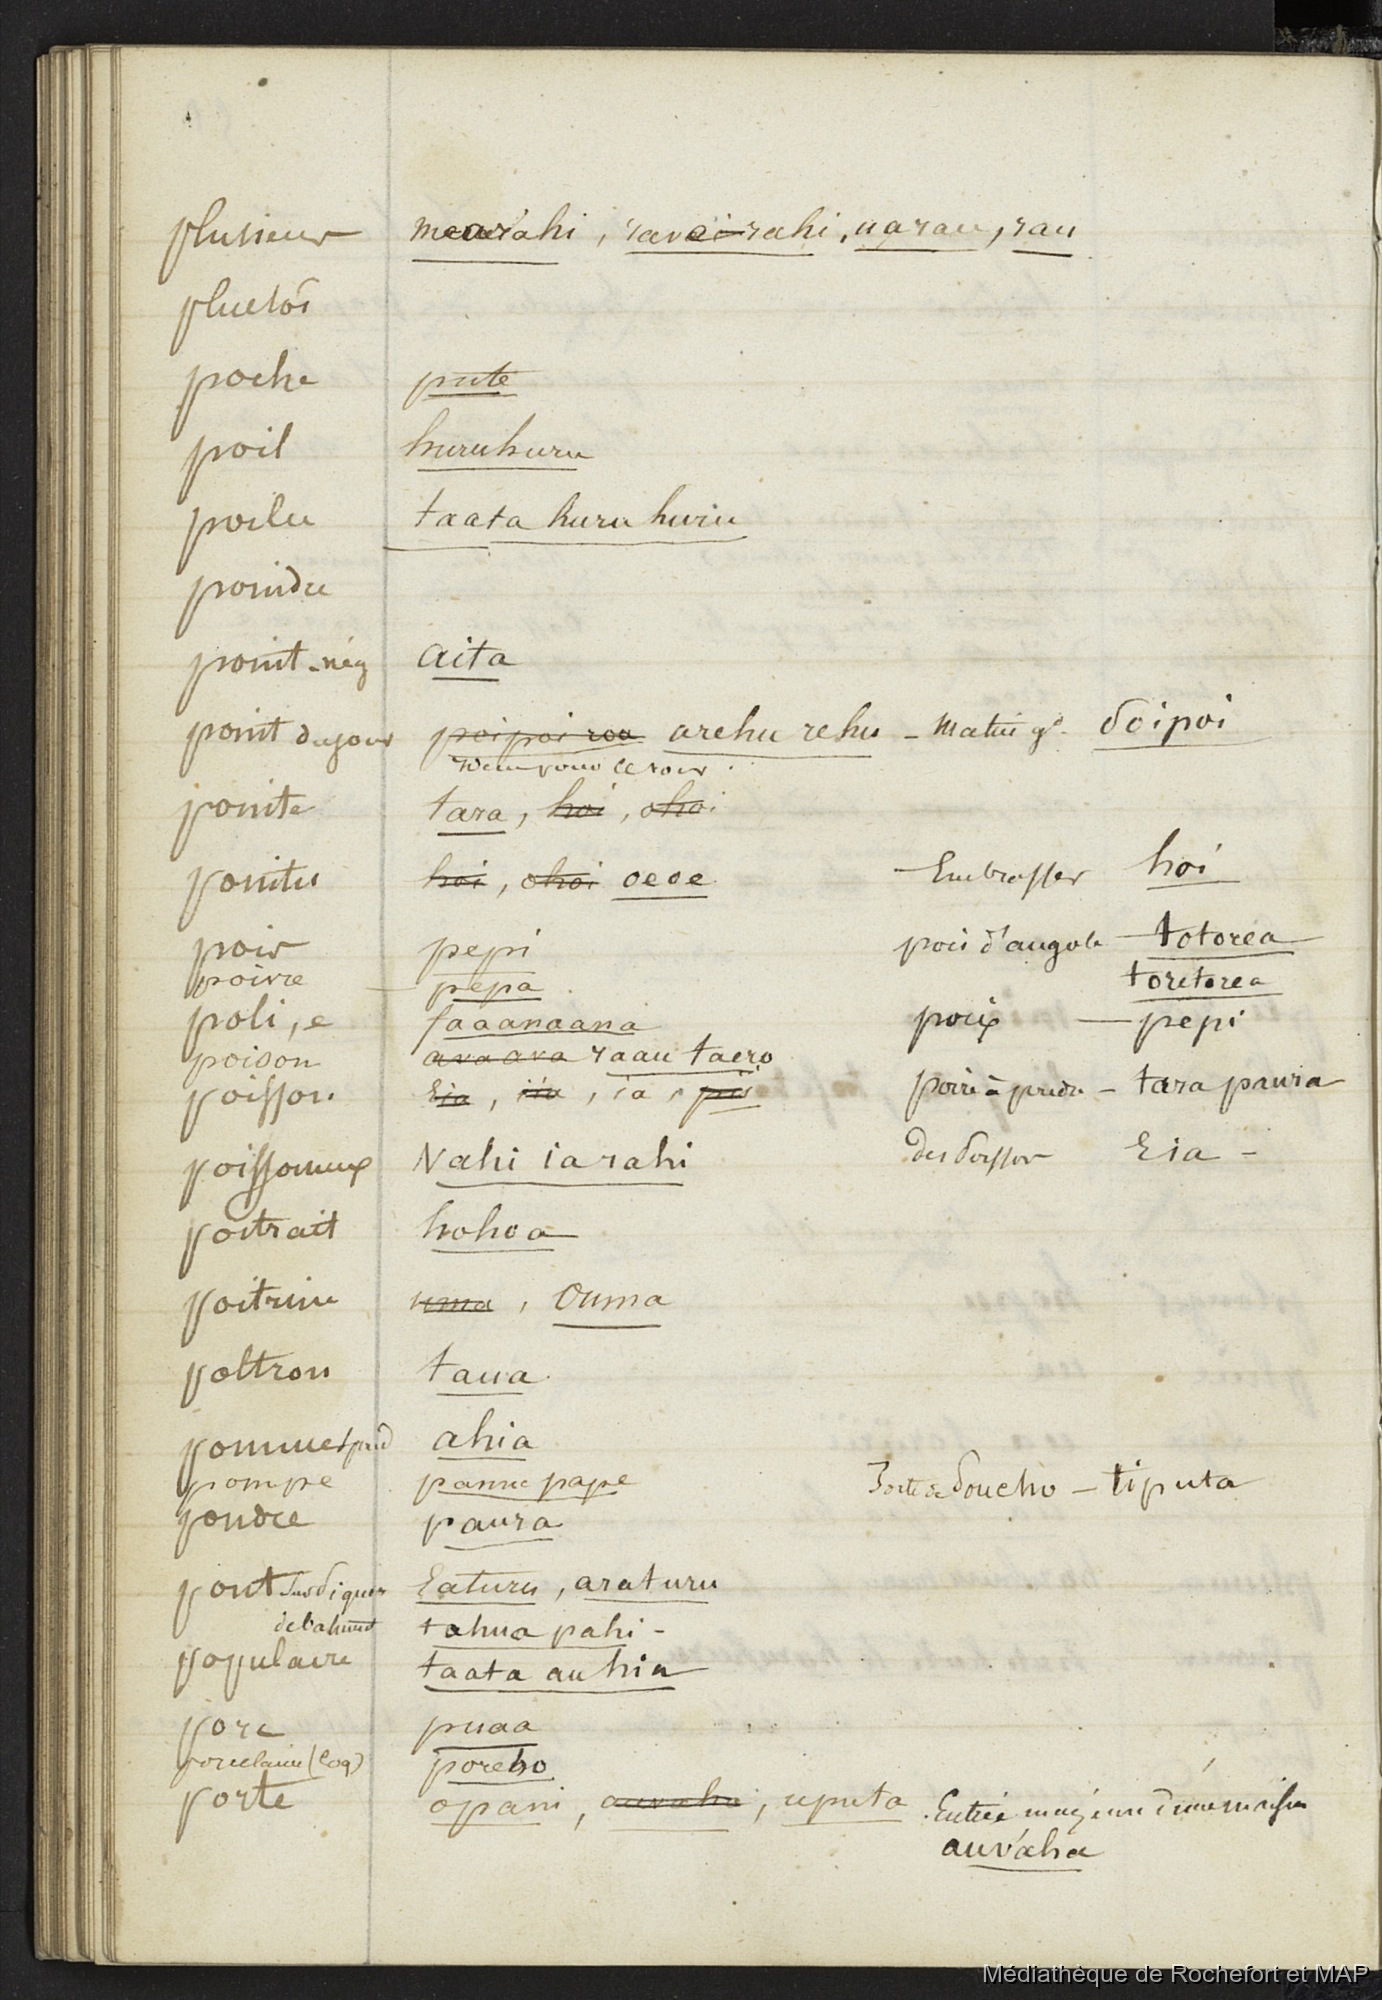 plusieur mearahi, ravairahi, uarau, rau
plutôt
poche pute
poil huruhuru
poilu taata huru huru
poindre
point - nég aita
point du jour poipoi roa arehu rehu - Matin gd. Poipoi
pointe tara, hoi, ohoi
pointu hoi, ohoi oeoe - Embrasser hoi
pois pepi pois d'angole - totorea
poivre pepa toretorea
poli, e faaanaana poix - pepi
poison avaava raau taero
poisson Eia, iia, ia, poire à poudre - tara paura
poissonneux Nahi ia rahi des Poisson Eia -
portrait hohoa
poitrine uma, Ouma
poltron taua
pomme ahia
pompe pamu pape Porte de Poucho - tiputa
poudre paura
pont Eaturu, araturu
de batiment tahua pahi -
populaire taata au hia
porc puaa
porcelaine (Coq) poreho
porte opani, auvaha, uputa. Entrée d'une maison
auvaha
Médiathèque de Rochefort et MAP